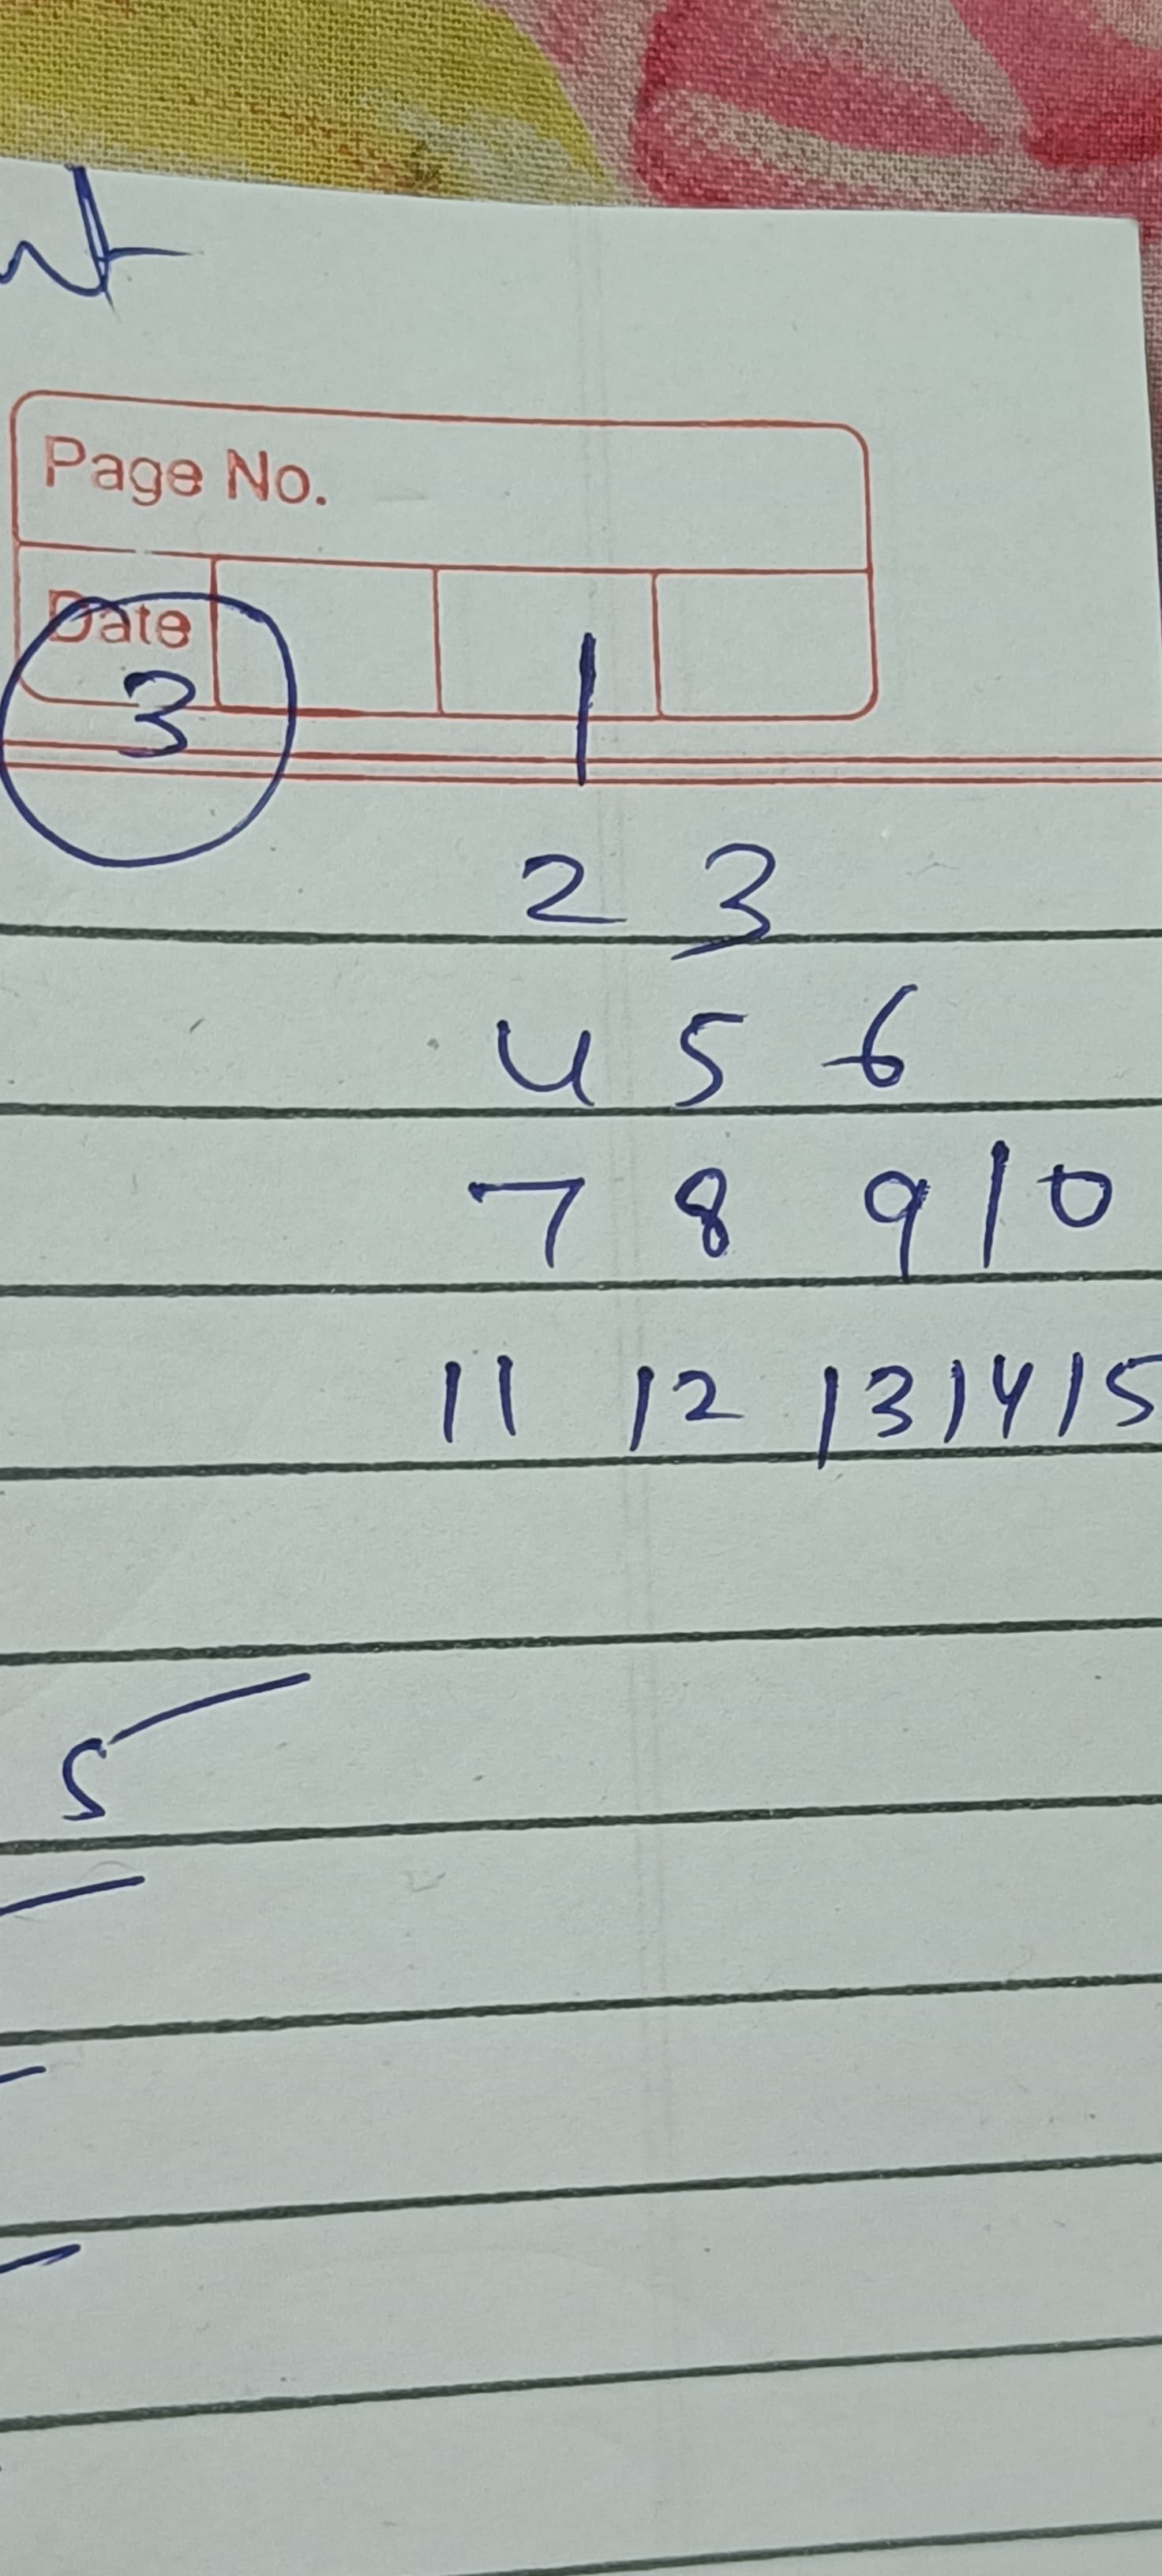 Page No.
Date
3 1
2 3
4 5 6
7 8 9 10
11 12 13 14 15
5